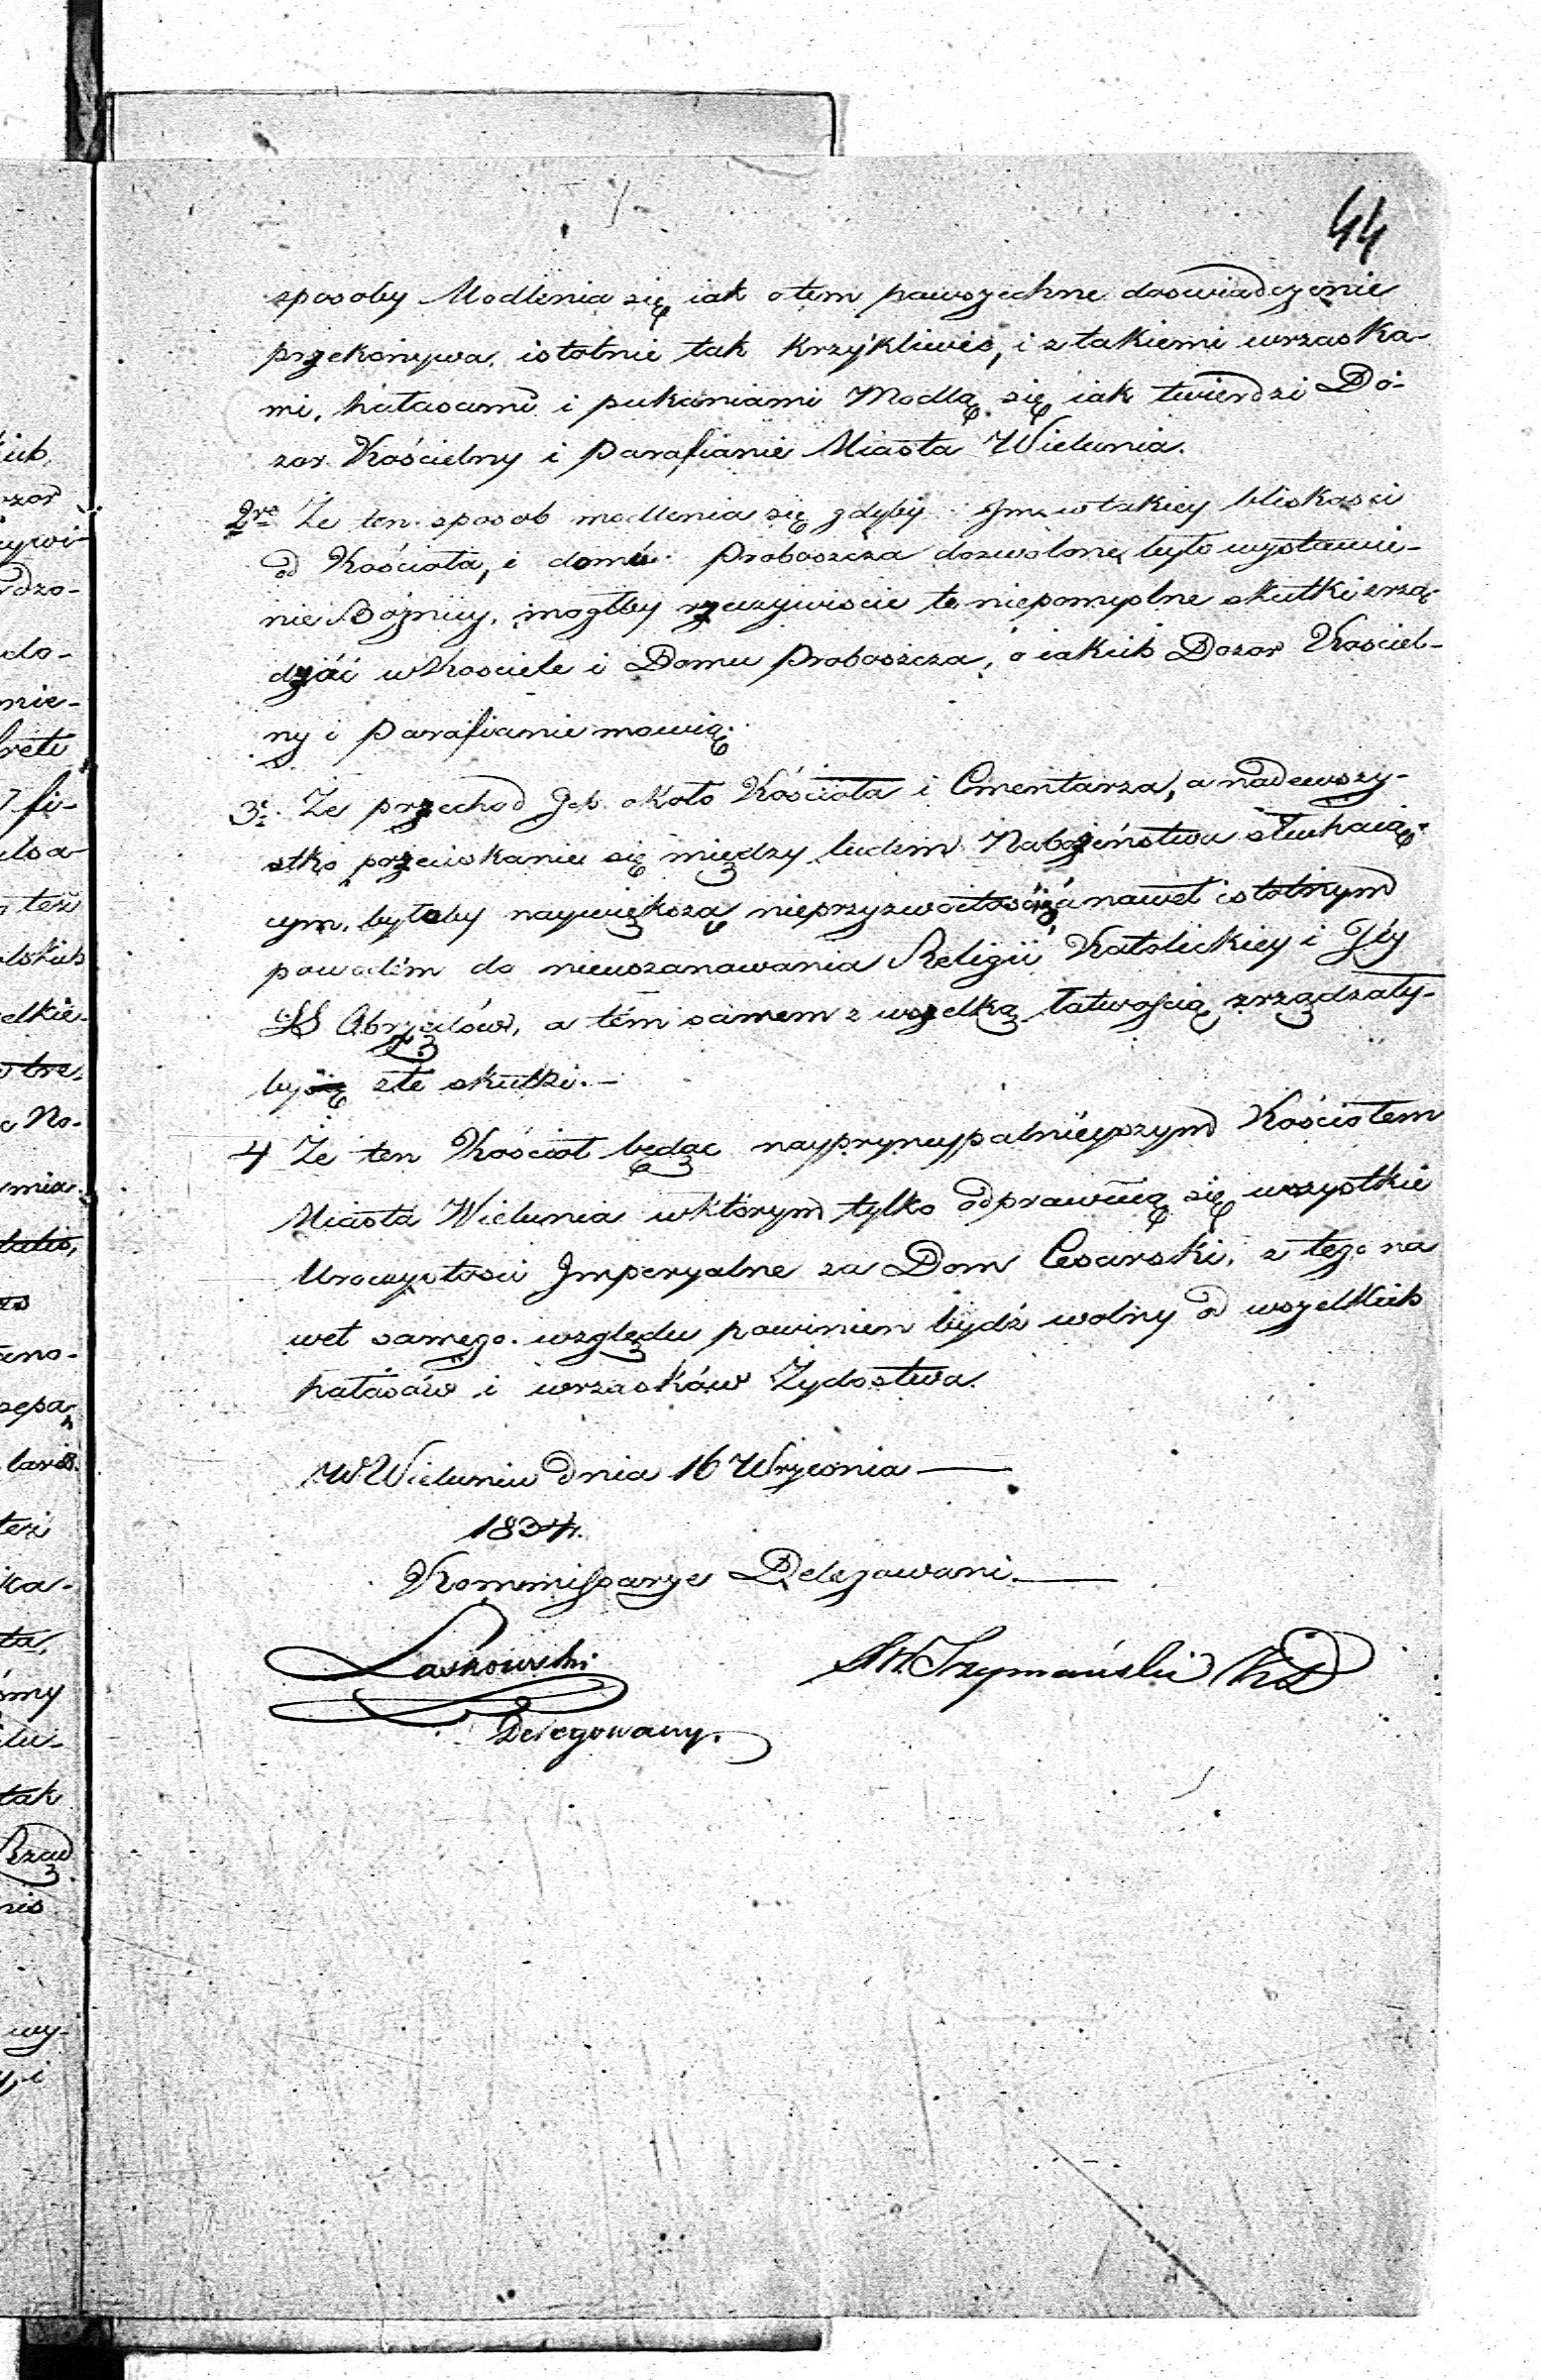 44
sposoby Modlenia się iak o tem powszechne doswiadczenie
przekonywa, istotnie tak krzykliwie, i z takiemi wrzaska-
mi, hałasami i pukaniami Modlą się iak twierdzi Do-
zor Kościelny i Parafianie Miasta Wielunia.
2re Że ten sposob modlenia się gdyby Im w takiey bliskosci
od Kościoła, i domu Proboszcza dozwolone było wystawie-
nie Bożnicy, mogłby rzeczywiscie te niepomyslne skutki zrzą-
dzać w Kosciele i Domu Proboszcza, o iakich Dozor Kosciel-
ny i Parafianie mowią.
3e Że przechod Ich około Kościoła i Cmentarza, a nadewszy-
stko przeciskanie się między ludem Nabożeństwa słuchaią-
cym, byłoby naywiększą nieprzyzwoitością a nawet istotnym
powodem do nieuszanowania Religii Katolickiey i Jéy
SS Obrzędów, a tém samem z wszelką łatwością zrządzały-
by się złe skutki.—
4 Że ten Kościoł będąc naypryncypalnieyszym Kościołem
Miasta Wielunia w którym tylko odprawiaią się wszystkie
Uroczystosci Imperyalne za Dom Cesarski, z tego na
wet samego względu powinien bydź wolny od wszelkich
hałasów i wrzasków Żydostwa.
W Wieluniu dnia 16 Września —
1834.
Kommissarze Delegowani —
Laskowski
Delegowany.
Szymański
ich
zor
do-
mie-
też
elkie-
No-
mia
ano-
też
ta,
tak
wy-